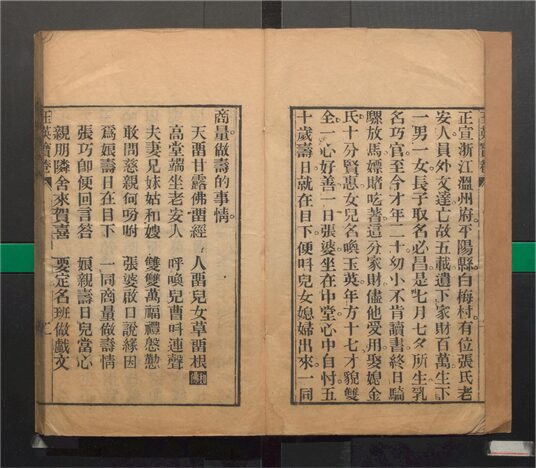 正宣浙江溫州府平陽縣白梅村。有位張氏老
安人員外文達亡故五載。遺下家財百萬生下
一男一女。長子取名必昌。是七月七夕所生。乳
名巧官。至今才年二十。幼小不肯讀書終日騎
騾放馬嫖賭吃著。這分家財儘他愛用。娶媳金
氏十分賢惠。女兒名喚玉英。年方十七。才貌雙
全。一心好善。一日張婆坐在中堂心中自忖五
十歲壽日就在目下。便呌兒女媳婦出來。一同
商量做壽的事情。
天畱甘露佛畱經 人畱兒女草畱根
高堂端坐老安人 呼喚兒曹呌連聲
夫妻兄妹姑和嫂 雙雙萬福禮慇懃
敢問慈親何吩咐 張婆啟口說緣因
為娘壽日在目下 一同商量做壽情
張巧郎便回言答 娘親壽日兒當心
親朋隣舍來賀喜 要定名班做戲文
玉英寶卷